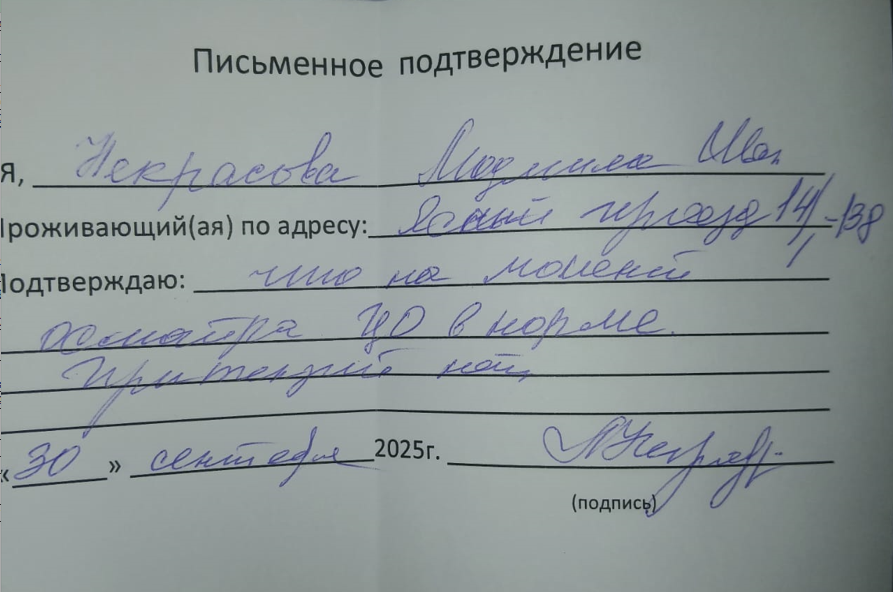 Письменное подтверждение
Я, Некрасова Людмила Иван
Проживающий(ая) по адресу: Ясный проезд 14/-138
Подтверждаю: что на момент
осмотра ЦО в норме.
Притензий нет,
«30» сентября 2025г.
(подпись)